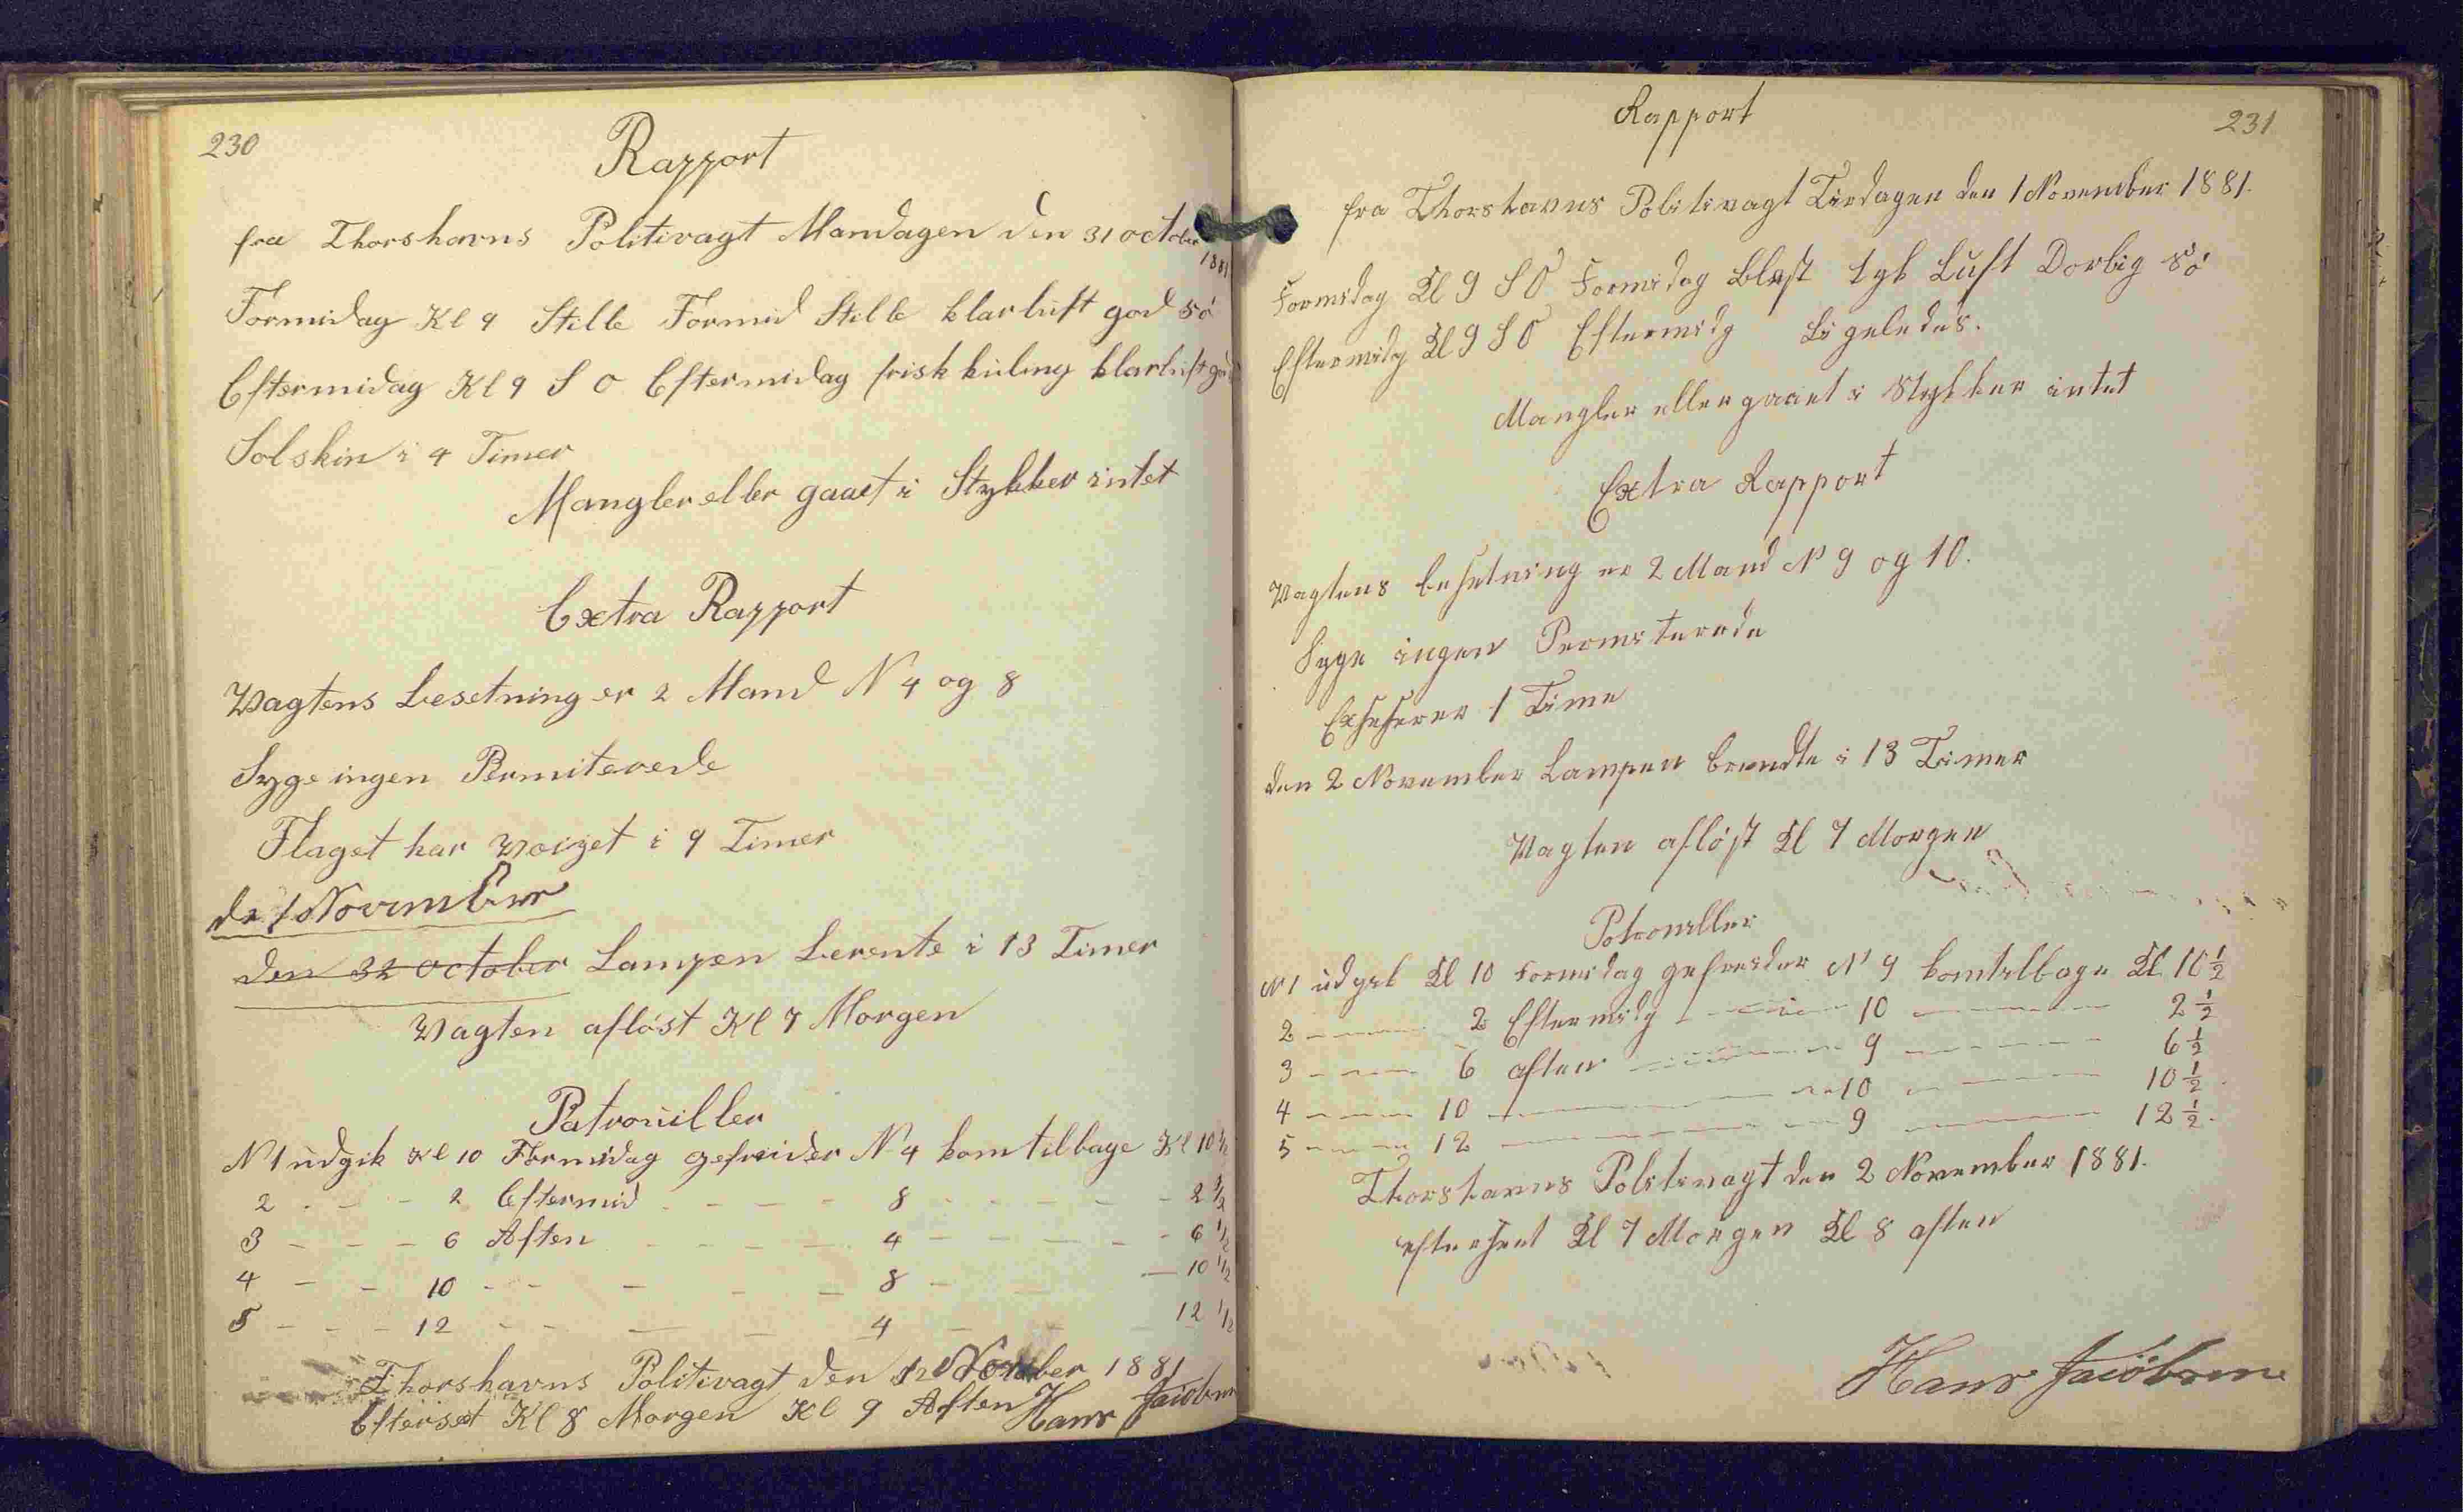 230
Rapport
fra Thorshavns Politivagt Mandagen den 31 october
1881
Formidag Kl 9 Stille Formid Stille klarluft god Sö
Eftermidag Kl 9 S O Eftermidag frisk kuling klarluft god
Solskin i 4 Timer
Mangler eller gaaet i Stykker intet
Extra Rapport
Vagtens besetning er 2 Mand N 4 og 8
Syge ingen Permiterede
Flaget har Vaiget i 9 Timer
de 1 November
den 32 october Lampen berente i 13 Timer
Vagten aflöst Kl 7 Morgen
Patrouiller
N 1 udgik Kl 10 Formidag gefreider N 4 kom tilbage Kl 10 1/2
2 - - - 2 Eftermid - - - - 8 - - - - - 2 1/2
3 - - - 6 Aften - - - - 4 - - - - - 6 1/2
4 - - 10 - - - - - 8 - - 10 1/2
5 - - - 12 - - - - 4 - - - 12 1/2
Thorshavns Politivagt den 1 November 1881
Efterset Kl 8 Morgen Kl 9 Aften Hans Jacobsen
231
Rapport
fra Thorshavns Politivagt Tirdagen den 1 November 1881.
Formidag Kl 9 S O Formidag Blest tyk Luft Dorlig Sö
Eftermidg Kl 9 S O Eftermidg Ligeledes.
Mangler eller gaaet i Stykker intet
Extra Rapport
Vagtens besetning er 2 Mand N 9 og 10.
Syge ingen Permiterede
Exseserer 1 Time
den 2 November Lampen brendte i 13 Timer
Vagten aflöst Kl 7 Morgen
Patrouiller
N 1 udgik Kl 10 Formidag gefreider N 9 kom tilbage Kl 10 1/2
2 - - - 2 Eftermidg - - - 10 - - - 2 1/2
3 - - - 6 aften - - - 9 - - - 6 1/2
4 - - - 10 - - - 10 - - - 10 1/2
5 - - - 12 - - - 9 - - - 12 1/2.
Thorshavns Politivagt den 2 November 1881.
efterset Kl 7 Morgen Kl 8 aften
Hans Jacobsen